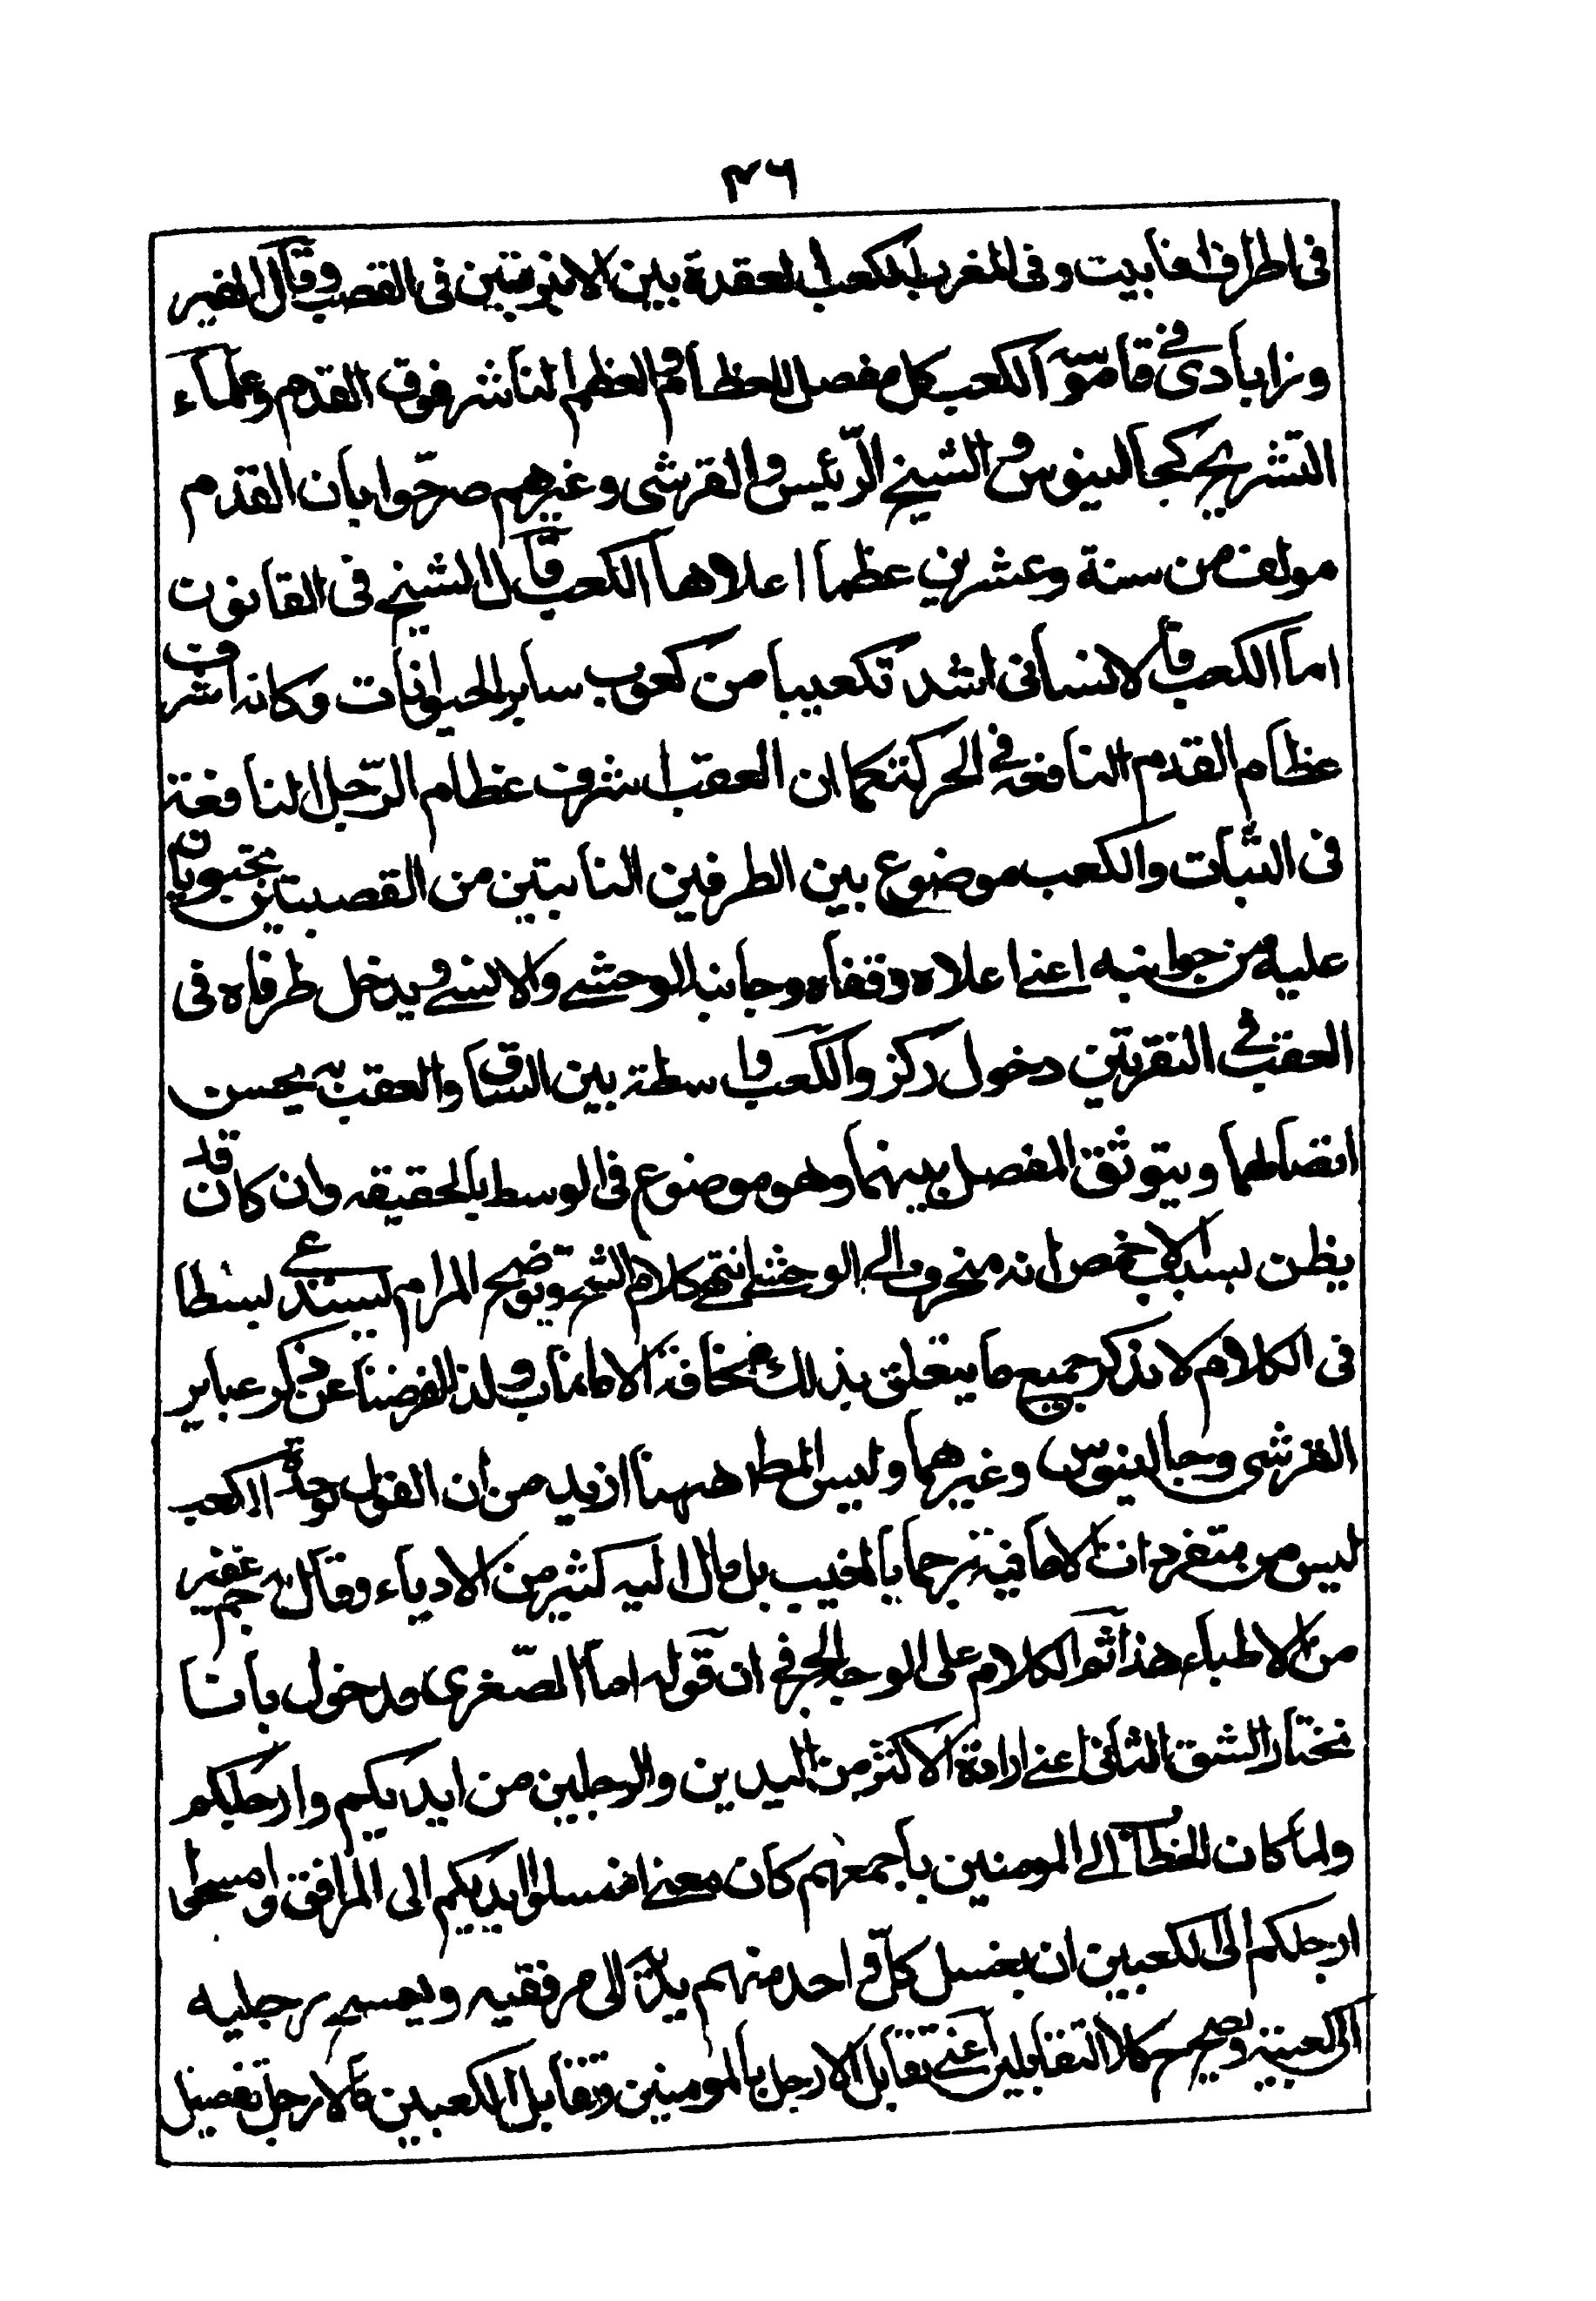 ٣٦
فى اطراف انابيت وفى المغرب الكعب العقدة بين الانبوبتين فى القصب وقال الفير
وزابادى فى قاموسه الكعب كل مفصل للعظام والعظم الناشر فوق القدم وعلماء
التشريح كجالينوس والشيخ الرّئيس والقرشى وغيرهم صرحّوا بان القدم
مولف من ستة وعشرين عظما اعلاها الكعب قال الشيخ فى القانون
اما الكعب فالانسانى اشد تكعيبا من كعوب ساير الحيوانات وكانه اشرف
عظام القدم النافعه فى الحركة كما ان العقب اشرف عظام الرّجل النافعة
فى الثبات والكعب موضوع بين الطرفين النابتين من القصبتين يحتويان
عليه من جوانبه اعنى اعلاه وقفاه وجانبه الوحشى والانسى ويدخل طرفاه فى
العقب فى النقرتين دخول ركز والكعب واسطة بين الساق والعقب به يحسن
اتصالهما ويتوثق المفصل بينهما وهو موضوع فى الوسط بالحقيقه وان كان قد
يظن بسبب الاخمص انه منحرف الى الوحشى انتهى كلام الشيخ وتوضيح المرام يستدعى بسطا
فى الكلام لا نذكر جميع ما يتعلق بذلك مخافة الاطناب ولذا اعرضنا عن ذكر عباير
القرشى وجالينوس وغيرهما وليس المط ههنا ازيد من ان القول بوحدة الكعب
ليس من متفردات الامامية رجما بالغيب بل مال اليه كثير من الادباء وقال به جم غفير
من الاطباء هذا ثم الكلام على الوجه الجرفى ان قوله اما الصّغرى مدخول باننا
نختار الشق الثانى اعنى ارادة الاكثر من اليدين والرجلين من ايديكم وارجلكم
ولما كان الخطاب الى المومنين باجمعهم كان معنى اغسلوا ايديكم الى المرافق وامسحوا
ارجلكم الى الكعبين ان يغسل كل واحد منهم يديه الى مرفقيه ويمسح رجليه
الى كعبيه ويصح كلا التقابلين اعنى تقابل الارجل بالمومنين وتقابل الكعبين بالارجل تفصيل